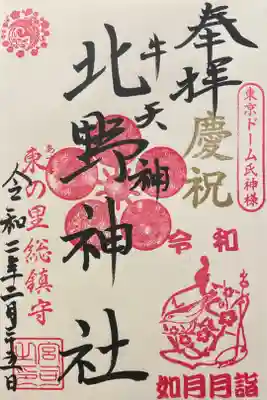 奉拝
慶祝
東京ドーム氏神様
牛天神
北野神社
東の里総鎮守
令和二年二月二十五日
令和
如月月詣